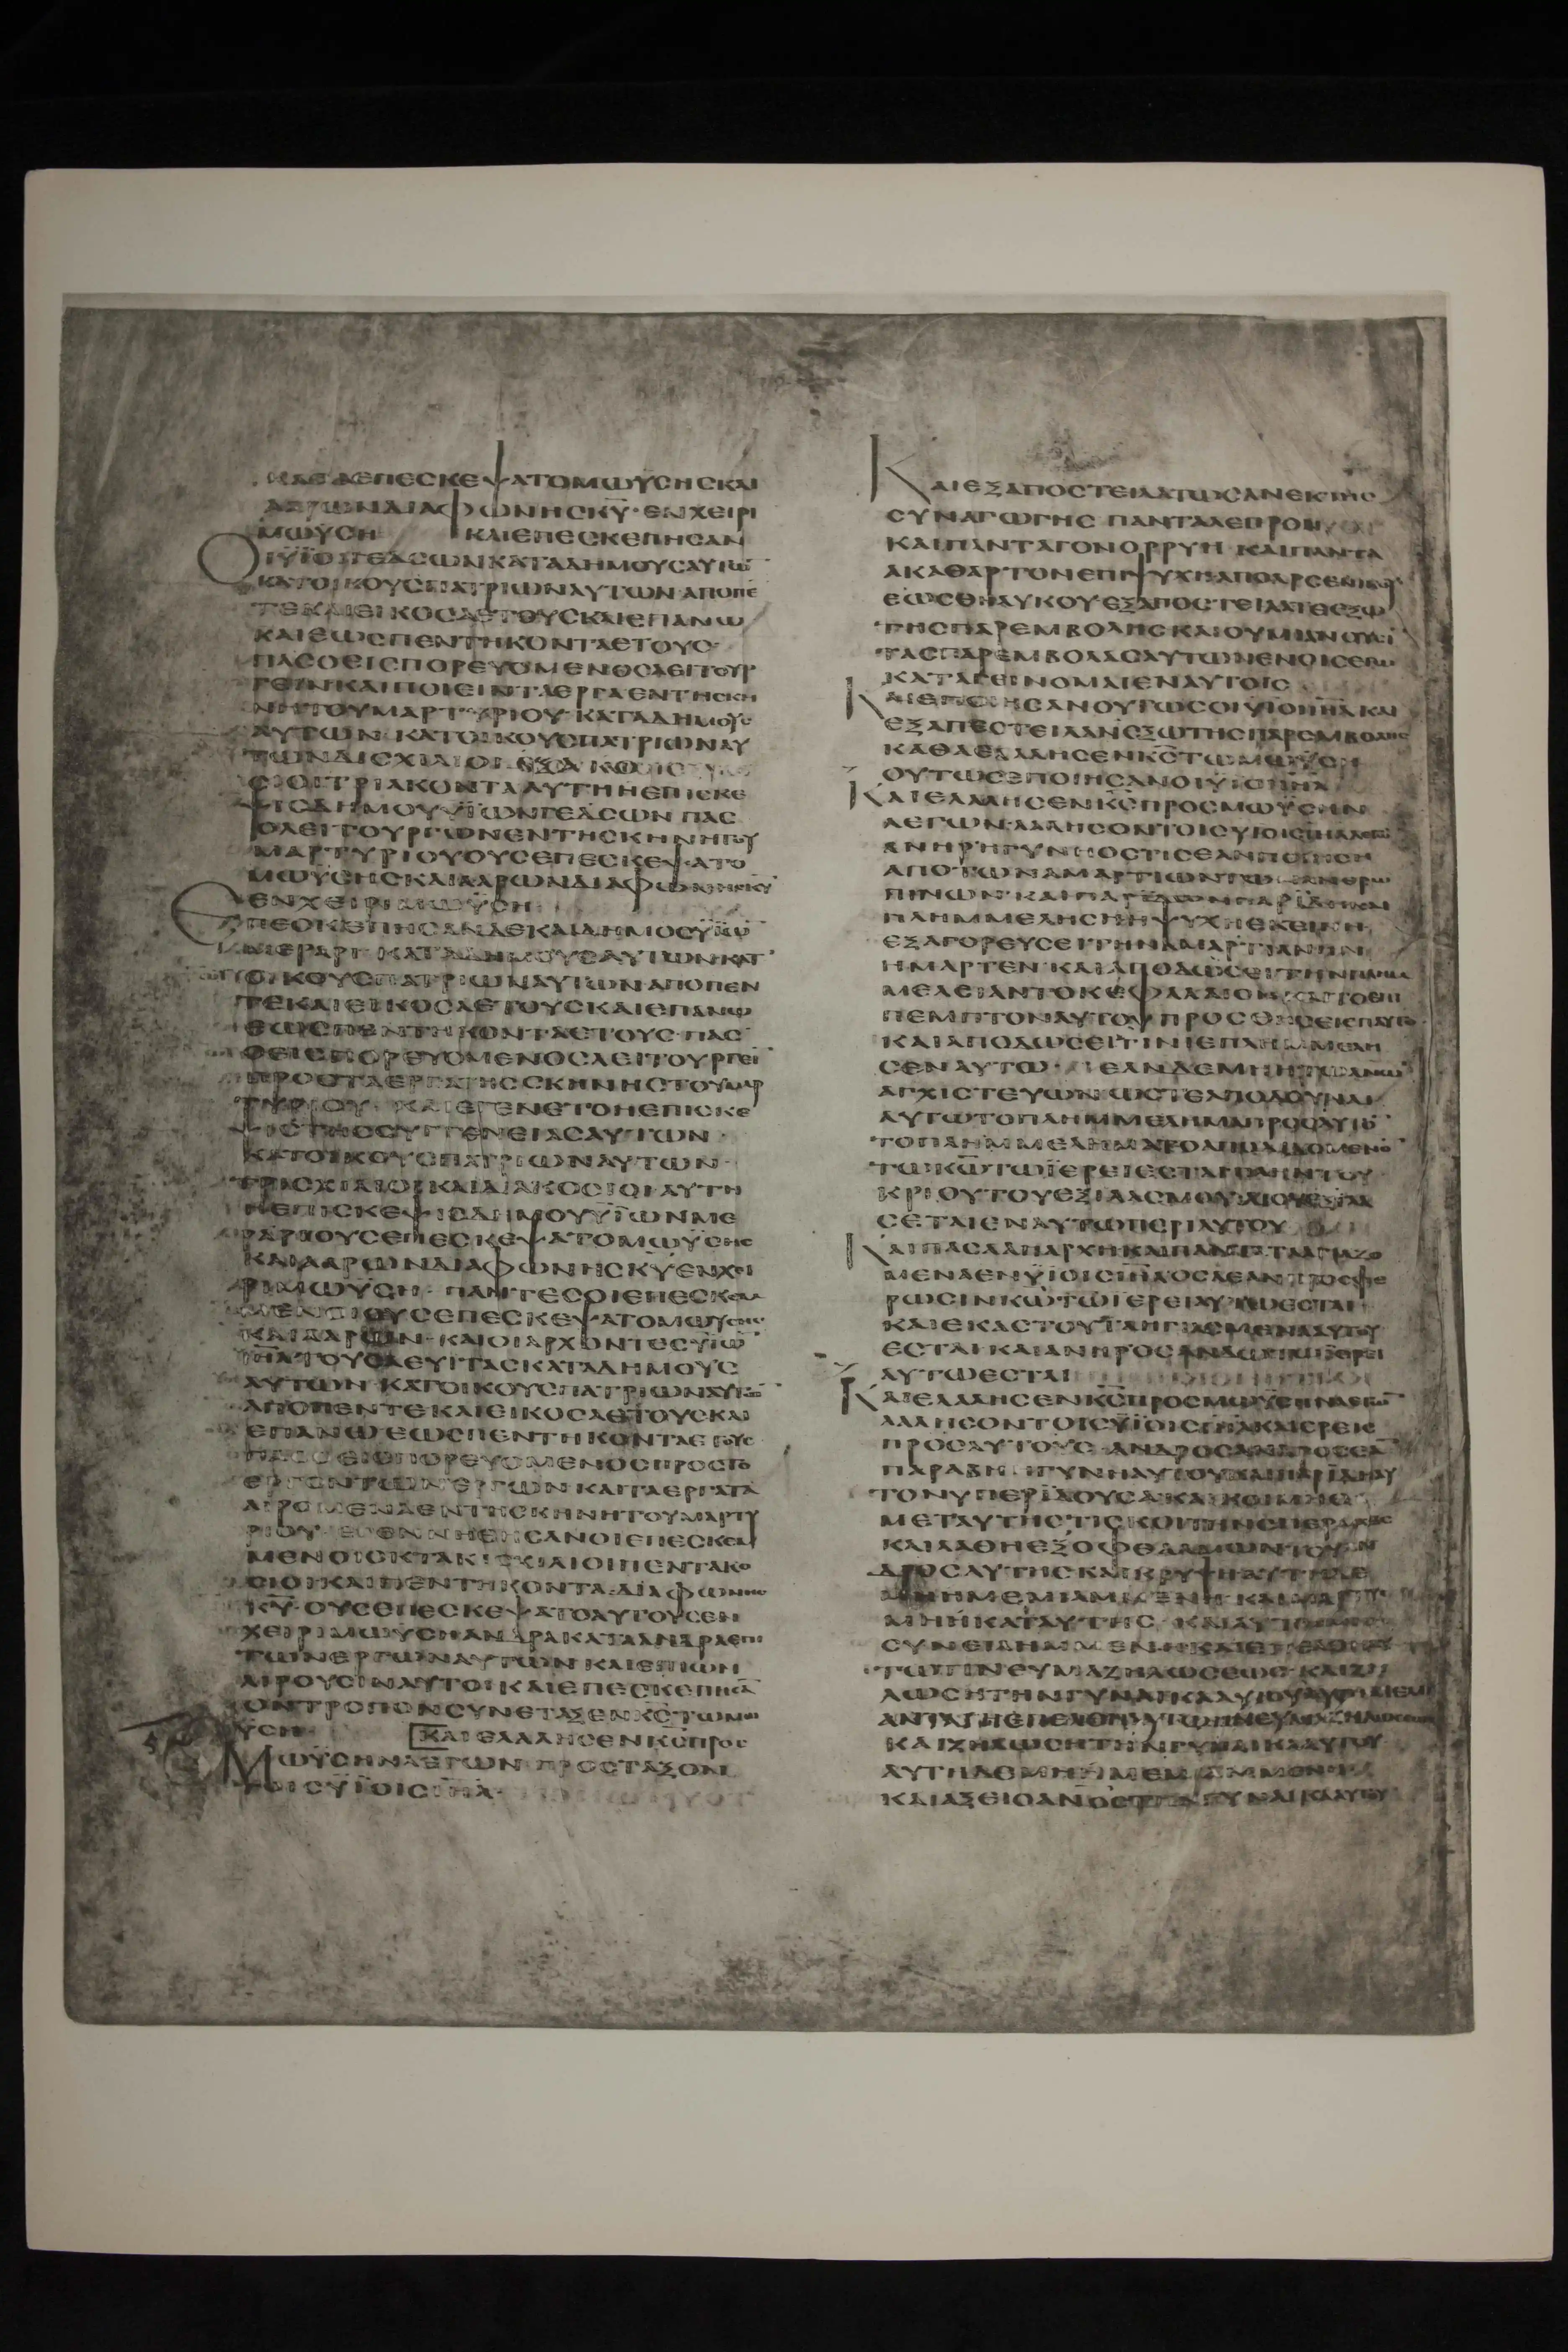 ΚΑΘΑΕΠΕΣΚΕΨΑΤΟΜΩΫΣΗΣΚΑΙ
ΑΑΡΩΝΔΙΑΦΩΝΗΣΚΥ·ΕΝΧΕΙΡΙ
ΜΩΫΣΗ ΚΑΙΕΠΕΣΚΕΠΗΣΑΝ
ΟΙΫΙΟΙΓΕΔΣΩΝΚΑΤΑΔΗΜΟΥΣΑΥΤΩ̅
ΚΑΤΟΙΚΟΥΣΠΑΤΡΙΩΝΑΥΤΩΝ·ΑΠΟΠΕ̅
ΤΕΚΑΙΕΙΚΟΣΑΕΤΟΥΣΚΑΙΕΠΑΝΩ
ΚΑΙΕΩΣΠΕΝΤΗΚΟΝΤΑΕΤΟΥΣ·
ΠΑΣΟΕΙΣΠΟΡΕΥΟΜΕΝΟΣΛΕΙΤΟΥΡ
ΓΕΙΝΚΑΙΠΟΙΕΙΝΤΑΕΡΓΑΕΝΤΗΣΚΗ
ΝΗΤΟΥΜΑΡΤΥΡΙΟΥ·ΚΑΤΑΔΗΜΟΥΣ
ΑΥΤΩΝ·ΚΑΤΟΙΚΟΥΣΠΑΤΡΙΩΝΑΥ
ΤΩΝΔΙΣΧΙΛΙΟΙ·ΕΞΑΚΟΣΙΟΙ
ΤΡΙΑΚΟΝΤΑΑΥΤΗΗΕΠΙΣΚΕ
ΨΙΣΔΗΜΟΥΫΙΩΝΓΕΔΣΩΝ ΠΑΣ
ΟΛΕΙΤΟΥΡΓΩΝΕΝΤΗΣΚΗΝΗΤΟΥ
ΜΑΡΤΥΡΙΟΥΟΥΣΕΠΕΣΚΕΨΑΤΟ
ΜΩΫΣΗΣΚΑΙΑΑΡΩΝΔΙΑΦΩΝΗΣΚΥ
ΕΝΧΕΙΡΙΜΩΫΣΗ
ΕΠΕΣΚΕΠΗΣΑΝΔΕΚΑΙΔΗΜΟΣΫΙΩ̅
ΜΕΡΑΡΙ ΚΑΤΑΔΗΜΟΥΣΑΥΤΩΝΚΑΤ
ΟΙΚΟΥΣΠΑΤΡΙΩΝΑΥΤΩΝΑΠΟΠΕΝ
ΤΕΚΑΙΕΙΚΟΣΑΕΤΟΥΣΚΑΙΕΠΑΝΩ
ΕΩΣΠΕΝΤΗΚΟΝΤΑΕΤΟΥΣ·ΠΑΣ
ΟΕΙΣΠΟΡΕΥΟΜΕΝΟΣΛΕΙΤΟΥΡΓΕΙ̅
ΠΡΟΣΤΑΕΡΓΑΤΗΣΣΚΗΝΗΣΤΟΥΜΑΡ
ΤΥΡΙΟΥ· ΚΑΙΕΓΕΝΕΤΟΗΕΠΙΣΚΕ
ΨΙΣ ΣΥΓΓΕΝΕΙΑΣΑΥΤΩΝ·
ΚΑΤΟΙΚΟΥΣΠΑΤΡΙΩΝΑΥΤΩΝ·
ΤΡΙΣΧΙΛΙΟΙ·ΚΑΙΔΙΑΚΟΣΙΟΙ·ΑΥΤΗ
ΗΕΠΙΣΚΕΨΙΣΔΗΜΟΥΫΙΩΝΜΕ
ΡΑΡΙΟΥΣΕΠΕΣΚΕΨΑΤΟΜΩΫΣΗΣ
ΚΑΙΑΑΡΩΝΔΙΑΦΩΝΗΣΚΥ·ΕΝΧΕΙ
ΡΙΜΩΫΣΗ· ΠΑΝΤΕΣΟΙΕΠΕΣΚΕΜ
ΜΕΝΟΙΟΥΣΕΠΕΣΚΕΨΑΤΟΜΩΫΣΗΣ
ΚΑΙΑΑΡΩΝ·ΚΑΙΟΙΑΡΧΟΝΤΕΣΫΙΩ̅
ΙΗΛΤΟΥΣΛΕΥΙΤΑΣΚΑΤΑΔΗΜΟΥΣ
ΑΥΤΩΝ·ΚΑΤΟΙΚΟΥΣΠΑΤΡΙΩΝΑΥΤΩ̅
ΑΠΟΠΕΝΤΕΚΑΙΕΙΚΟΣΑΕΤΟΥΣΚΑΙ
ΕΠΑΝΩΕΩΣΠΕΝΤΗΚΟΝΤΑΕΤΟΥΣ
ΠΑΣΟΕΙΣΠΟΡΕΥΟΜΕΝΟΣΠΡΟΣΤΟ
ΕΡΓΟΝΤΩΝΕΡΓΩΝΚΑΙΤΑΕΡΓΑΤΑ
ΑΙΡΟΜΕΝΑΕΝΤΗΣΚΗΝΗΤΟΥΜΑΡΤΥ
ΡΙΟΥ· ΣΑΝΟΙΕΠΕΣΚΕΜ
ΜΕΝΟΙΟΚΤΑΚΙΣΧΙΛΙΟΙΠΕΝΤΑΚΟ
ΣΙΟΙΚΑΙΠΕΝΤΗΚΟΝΤΑ·ΔΙΑΦΩΝΗΣ
ΚΥ·ΟΥΣΕΠΕΣΚΕΨΑΤΟΑΥΤΟΥΣΕΝ
ΧΕΙΡΙΜΩΫΣΗΑΝΔΡΑΚΑΤΑΑΝΔΡΑΕΠΙ
ΤΩΝΕΡΓΩΝΑΥΤΩΝΚΑΙΕΠΙΩΝ
ΑΙΡΟΥΣΙΝΑΥΤΟΙΚΑΙΕΠΕΣΚΕΠΗΣΑ̅
ΟΝΤΡΟΠΟΝΣΥΝΕΤΑΞΕΝΚΣΤΩΜΩ
ΫΣΗ ΚΑΙΕΛΑΛΗΣΕΝΚΣΠΡΟΣ
ΜΩΫΣΗΝΛΕΓΩΝ ΠΡΟΣΤΑΞΟΝ
ΤΟΙΣΫΙΟΙΣΙΗΛ·
ΚΑΙΕΞΑΠΟΣΤΕΙΛΑΤΩΣΑΝΕΚΤΗΣ
ΣΥΝΑΓΩΓΗΣ ΠΑΝΤΑΛΕΠΡΟΝ
ΚΑΙΠΑΝΤΑΓΟΝΟΡΡΥΗ·ΚΑΙΠΑΝΤΑ
ΑΚΑΘΑΡΤΟΝΕΠΙΨΥΧΗΑΠΟΑΡΣΕΝΙΚΟΥ
ΕΩΣΘΗΛΥΚΟΥΕΞΑΠΟΣΤΕΙΛΑΤΕΕΞΩ
ΤΗΣΠΑΡΕΜΒΟΛΗΣΚΑΙΟΥΜΙΑΝΟΥΣΙ
ΤΑΣΠΑΡΕΜΒΟΛΑΣΑΥΤΩΝΕΝΟΙΣΕΓΩ
ΚΑΤΑΓΕΙΝΟΜΑΙΕΝΑΥΤΟΙΣ
ΚΑΙΕΠΟΙΗΣΑΝΟΥΤΩΣΟΙΫΙΟΙΙΗΛΚΑΙ
ΕΞΑΠΕΣΤΕΙΛΑΝΕΞΩΤΗΣΠΑΡΕΜΒΟΛΗΣ
ΚΑΘΑΕΛΑΛΗΣΕΝΚΣΤΩΜΩΫΣΗ
ΟΥΤΩΣΕΠΟΙΗΣΑΝΟΙΫΙΟΙΙΗΛ
ΚΑΙΕΛΑΛΗΣΕΝΚΣΠΡΟΣΜΩΫΣΗΝ
ΛΕΓΩΝ·ΛΑΛΗΣΟΝΤΟΙΣΥΙΟΙΣΙΗΛ
ΑΝΗΡΗΓΥΝΗΟΣΤΙΣΕΑΝΠΟΙΗΣΗ
ΑΠΟΤΩΝΑΜΑΡΤΙΩΝΤΩΝΑΝΘΡΩ
ΠΙΝΩΝ·ΚΑΙΠΑΡΙΔΩΝΠΑΡΙΔΗΚΑΙ
ΠΛΗΜΜΕΛΗΣΗΗΨΥΧΗΕΚΕΙΝΗ
ΕΞΑΓΟΡΕΥΣΕΙΤΗΝΑΜΑΡΤΙΑΝΗΝ
ΗΜΑΡΤΕΝ·ΚΑΙΑΠΟΔΩΣΕΙΤΗΝΠΛΗΜ
ΜΕΛΕΙΑΝΤΟΚΕΦΑΛΑΙΟΝΚΑΙΤΟΕΠΙ
ΠΕΜΠΤΟΝΑΥΤΟΥΠΡΟΣΘΗΣΕΙΕΠΑΥΤΟ
ΚΑΙΑΠΟΔΩΣΕΙΤΙΝΙΕΠΛΗΜΜΕΛΗ
ΣΕΝΑΥΤΩ· ΕΑΝΔΕΜΗΗΤΩΑΝΩ
ΑΓΧΙΣΤΕΥΩΝΩΣΤΕΑΠΟΔΟΥΝΑΙ
ΑΥΤΩΤΟΠΛΗΜΜΕΛΗΜΑΠΡΟΣΑΥΤΟ̅
ΤΟΠΛΗΜΜΕΛΗΜΑΤΟΑΠΟΔΙΔΟΜΕΝΟ̅
ΤΩΚΩΤΩΙΕΡΕΙΕΣΤΑΙΠΛΗΝΤΟΥ
ΚΡΙΟΥΤΟΥΕΞΙΛΑΣΜΟΥΔΙΟΥΕΞΙΛΑ
ΣΕΤΑΙΕΝΑΥΤΩΠΕΡΙΑΥΤΟΥ
ΚΑΙΠΑΣΑΑΠΑΡΧΗΚΑΙΠΑΝΤΑΤΑΑΓΙΑΖΟ
ΜΕΝΑΕΝΫΙΟΙΣΙΗΛΟΣΑΕΑΝΠΡΟΣΦΕ
ΡΩΣΙΝΚΩΤΩΙΕΡΕΙΑΥΤΩΕΣΤΑΙ
ΚΑΙΕΚΑΣΤΟΥΤΑΗΓΙΑΣΜΕΝΑΑΥΤΟΥ
ΕΣΤΑΙ·ΚΑΙΑΝΗΡΟΣΑΝΔΩΤΩΙΕΡΕΙ
ΑΥΤΩΕΣΤΑΙ
ΚΑΙΕΛΑΛΗΣΕΝΚΣΠΡΟΣΜΩΫΣΗΝΛΕΓΩ̅
ΛΑΛΗΣΟΝΤΟΙΣΫΙΟΙΣΙΗΛΚΑΙΕΡΕΙΣ
ΠΡΟΣΑΥΤΟΥΣ·ΑΝΔΡΟΣΑΝΔΡΟΣΕΑ̅
ΠΑΡΑΒΗΗΓΥΝΗΑΥΤΟΥΚΑΙΠΑΡΙΔΗΑΥ
ΤΟΝΥΠΕΡΙΔΟΥΣΑΚΑΙΚΟΙΜΗΘΗ
ΜΕΤΑΥΤΗΣΤΙΣΚΟΙΤΗΝΣΠΕΡΜΑΤΟΣ
ΚΑΙΛΑΘΗΕΞΟΦΘΑΛΜΩΝΤΟΥΑΝ
ΔΡΟΣΑΥΤΗΣΚΑΙΚΡΥΨΗΑΥΤΗΔΕ
ΗΜΕΜΙΑΜΜΕΝΗ·ΚΑΙΜΑΡΤΥΣ
ΜΗΗΚΑΤΑΥΤΗΣ·ΚΑΙΑΥΤΗ
ΣΥΝΕΙΛΗΜΜΕΝΗΚΑΙΕΠΕΛΘΗ
ΤΩΠΝΕΥΜΑΖΗΛΩΣΕΩΣ·ΚΑΙΖΗ
ΛΩΣΗΤΗΝΓΥΝΑΙΚΑΑΥΤΟΥ
ΕΠΕΛΘΗΑΥΤΩΠΝΕΥΜΑΖΗΛΩΣΕΩΣ
ΚΑΙΖΗΛΩΣΗΤΗΝΓΥΝΑΙΚΑΑΥΤΟΥ
ΑΥΤΗΔΕΜΗΗΜΕΜΙΑΜΜΕΝΗ
ΚΑΙΑΞΕΙΟΑΝΘΣΤΗΝΓΥΝΑΙΚΑΑΥΤΟΥ